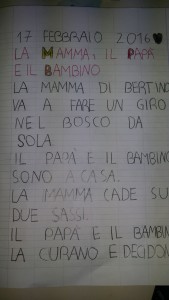 17 FEBBRAIO 2016
LA MAMMA, IL PAPÀ
E IL BAMBINO
LA MAMMA DI BERTINO
VA A FARE UN GIRO
NEL BOSCO DA
SOLA.
IL PAPÀ E IL BAMBINO
SONO A CASA.
LA MAMMA CADE SU
DUE SASSI.
IL PAPÀ E IL BAMBIN
LA CURANO E DECIDON